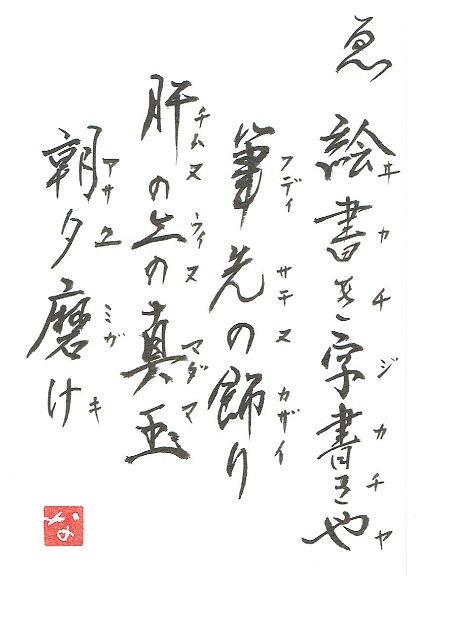 ゑ 絵書き字書きや
ヰカチジカチヤ
筆先の飾り
フディサチヌカザイ
肝の上の真玉
チムヌウィヌマダマ
朝夕磨け
アサユミガキ
な